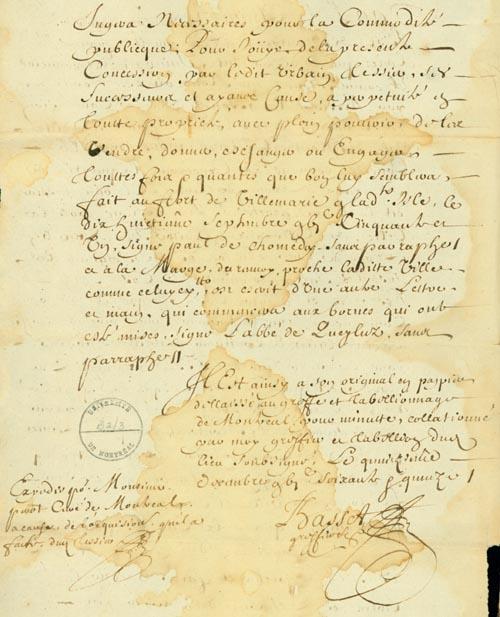 Jugera Necessaires pour la Commodité
publicque; Pour Jouyr de la presente
Concession par ledit Urbain Tessier, ses
successeurs et ayans Cause, a perpetuité en
toutte proprieté, avec plein pouvoir de la
vendre, donner, eschanger ou Engager
touttes fois & quantes que bon luy semblera,
fait au fort de Villemarie en lad. Isle, le
dix huictiesme Septembre gbi Cinquante et
Un, Signé paul de chomedey Sans parraphe /
et à la Marge, du costé, proche laditte Ville
comme est escrit d'Une autre Lettre
et main, qui commencera aux bornes qui ont
esté mises. Signé L'abbé de Queyluz, sans
parraphe //
Il Est ainsy a son original en papier
delaissé au greffe et tabellionnage
de Montreal, pour minutte, collationné
par moy greffier et tabellion dud.
lieu Soubsigné. Le quinziesme
decembre gbi Soixante & quinze /
Basset
greffier
Expedié po. Monsieur
perot Curé de Montreal
a cause de l'acquisition qu'il a
faitte dud. Tessier
UNIVERSITÉ
DE MONTREAL